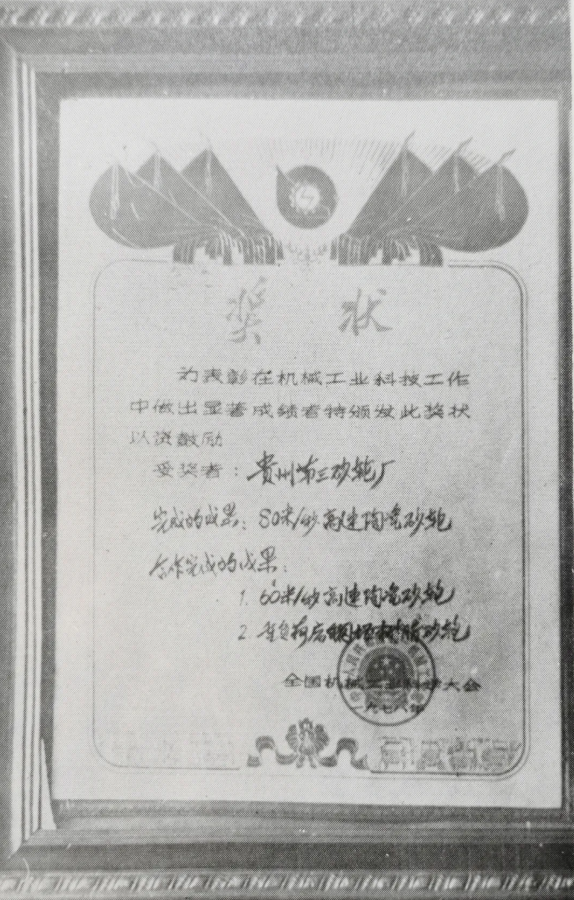 奖 状
为表彰在机械工业科技工作
中做出显著成绩者特颁发此奖状
以资鼓励
受奖者：贵州第三砂轮厂
完成的成果：80米/秒高速陶瓷砂轮
合作完成的成果：
1. 60米/秒高速陶瓷砂轮
2. 重负荷 钢坯树脂砂轮
全国机械工业科学大会
一九七八年